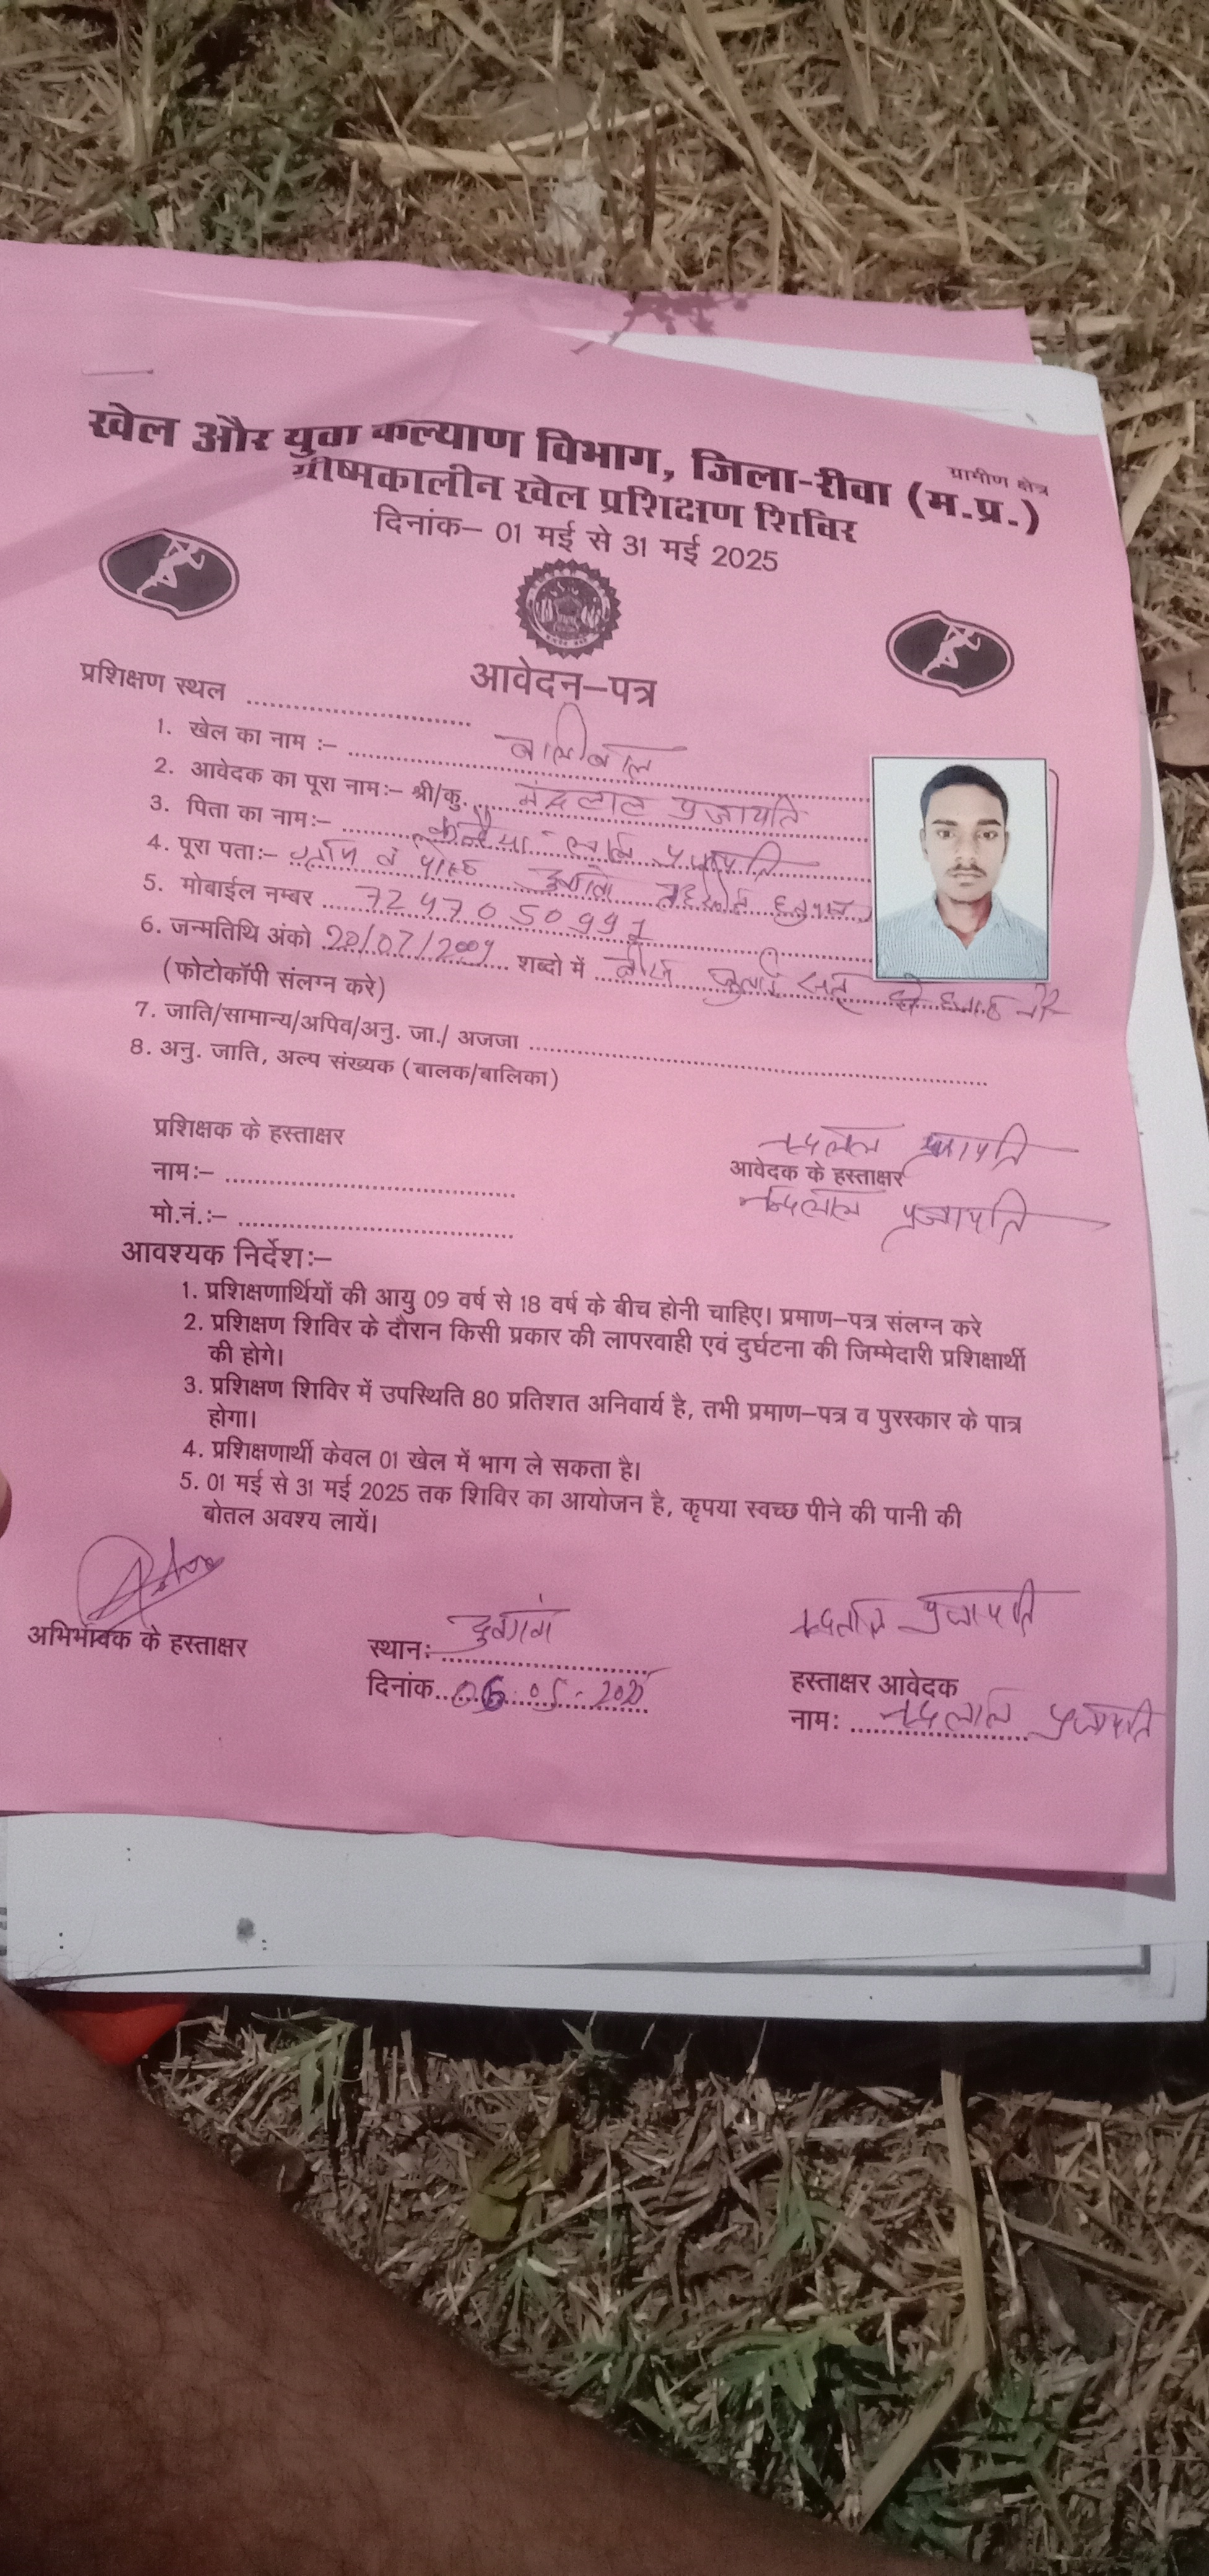 खेल और युवा कल्याण विभाग, जिला-रीवा (म.प्र.)
ग्रामीण क्षेत्र
ग्रीष्मकालीन खेल प्रशिक्षण शिविर
दिनांक– 01 मई से 31 मई 2025
आवेदन–पत्र
प्रशिक्षण स्थल ..............................
1. खेल का नाम :– ..............................
2. आवेदक का पूरा नामः– श्री/कु. नंदलाल प्रजापति
3. पिता का नामः– लाल प्रजापति
4. पूरा पताः– ग्राम व पोस्ट
5. मोबाईल नम्बर 7247050991
6. जन्मतिथि अंको 20/07/2009 शब्दो में बीस जुलाई सन्
(फोटोकॉपी संलग्न करे)
7. जाति/सामान्य/अपिव/अनु. जा./ अजजा ..............................
8. अनु. जाति, अल्प संख्यक (बालक/बालिका)
प्रशिक्षक के हस्ताक्षर
नन्दलाल प्रजापति
नामः– ..............................
आवेदक के हस्ताक्षर
मो.नं.:– ..............................
नन्दलाल प्रजापति
आवश्यक निर्देशः–
1. प्रशिक्षणार्थियों की आयु 09 वर्ष से 18 वर्ष के बीच होनी चाहिए। प्रमाण–पत्र संलग्न करे
2. प्रशिक्षण शिविर के दौरान किसी प्रकार की लापरवाही एवं दुर्घटना की जिम्मेदारी प्रशिक्षार्थी
की होगे।
3. प्रशिक्षण शिविर में उपस्थिति 80 प्रतिशत अनिवार्य है, तभी प्रमाण–पत्र व पुरस्कार के पात्र
होगा।
4. प्रशिक्षणार्थी केवल 01 खेल में भाग ले सकता है।
5. 01 मई से 31 मई 2025 तक शिविर का आयोजन है, कृपया स्वच्छ पीने की पानी की
बोतल अवश्य लायें।
नन्दलाल प्रजापति
अभिभावक के हस्ताक्षर
स्थानः
दिनांक 06.05.2025
हस्ताक्षर आवेदक
नामः नन्दलाल प्रजापति